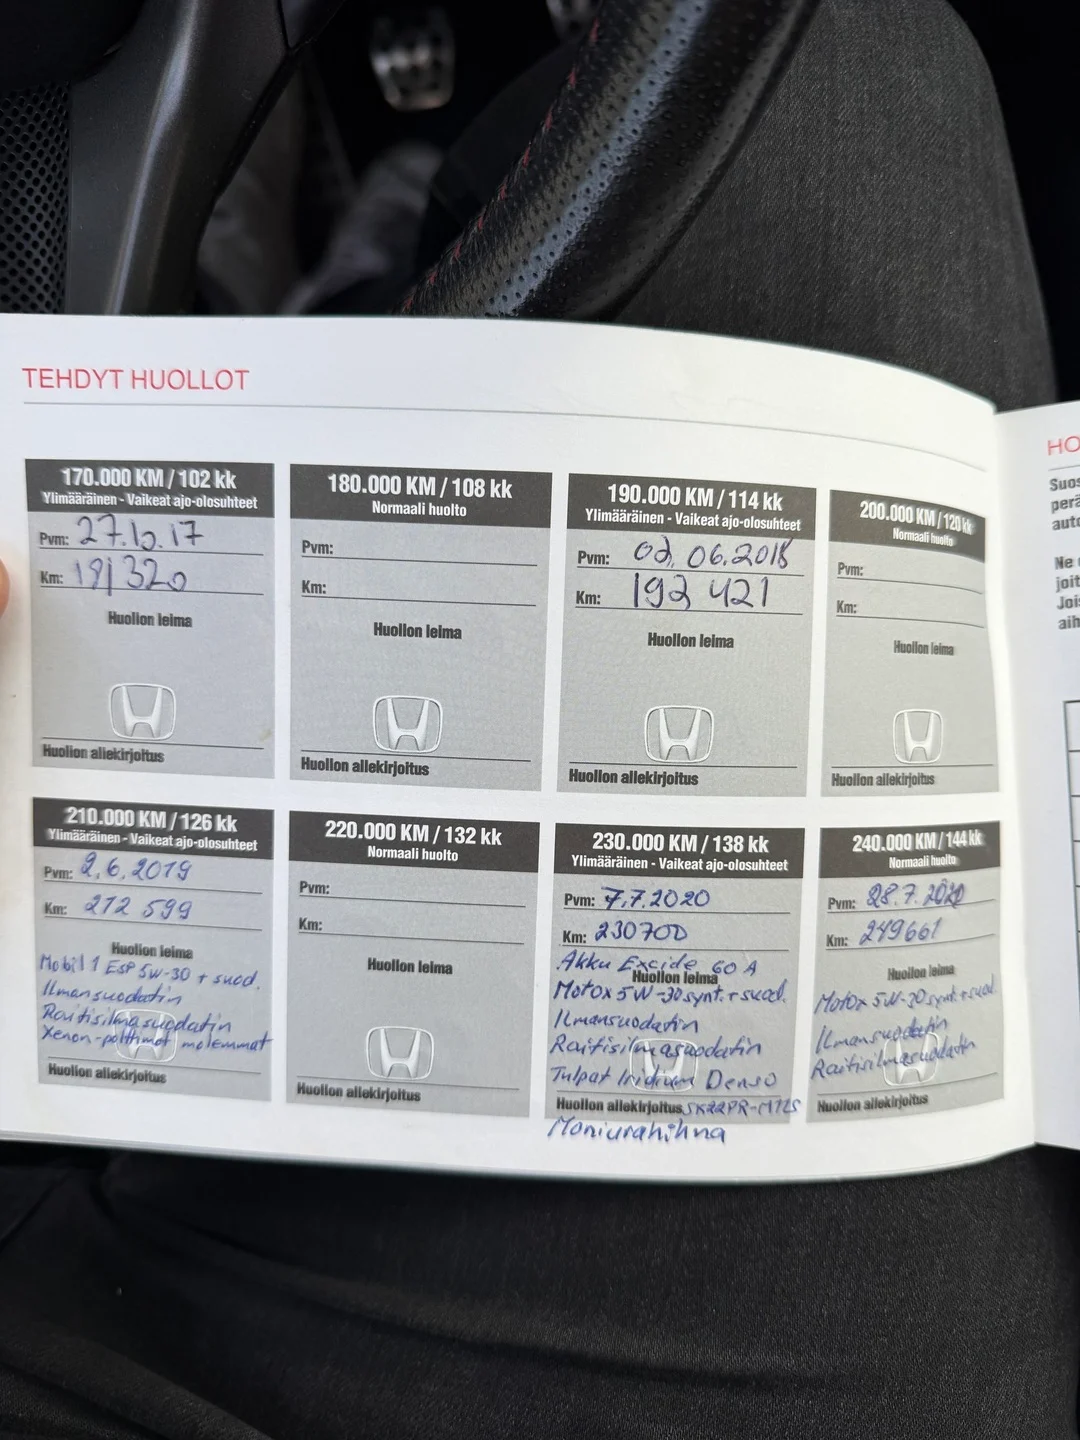 TEHDYT HUOLLOT
170.000 KM / 102 kk
Ylimääräinen - Vaikeat ajo-olosuhteet
Pvm: 27.10.17
Km: 191320
Huollon leima
Huollon allekirjoitus
180.000 KM / 108 kk
Normaali huolto
Pvm:
Km:
Huollon leima
Huollon allekirjoitus
190.000 KM / 114 kk
Ylimääräinen - Vaikeat ajo-olosuhteet
Pvm: 02.06.2018
Km: 192 421
Huollon leima
Huollon allekirjoitus
200.000 KM / 120 kk
Normaali huolto
Pvm:
Km:
Huollon leima
Huollon allekirjoitus
210.000 KM / 126 kk
Ylimääräinen - Vaikeat ajo-olosuhteet
Pvm: 2.6.2019
Km: 212 599
Huollon leima
Mobil 1 ESP 5W-30 + suod.
Ilmansuodatin
Raitisilmasuodatin
Xenon-polttimot molemmat
Huollon allekirjoitus
220.000 KM / 132 kk
Normaali huolto
Pvm:
Km:
Huollon leima
Huollon allekirjoitus
230.000 KM / 138 kk
Ylimääräinen - Vaikeat ajo-olosuhteet
Pvm: 7.7.2020
Km: 230700
Akku Exide 60 A
Huollon leima
Motox 5W-30 synt. + suod.
Ilmansuodatin
Raitisilmasuodatin
Tulpat Iridium Denso
Huollon allekirjoitus SK22PR-M11S
Moniurahihna
240.000 KM / 144 kk
Normaali huolto
Pvm: 28.7.
Km: 249661
Huollon leima
Motox 5W-30 synt. + suod.
Ilmansuodatin
Raitisilmasuodatin
Huollon allekirjoitus
HO
Suos
perä
auto
Ne
joit
Jois
aih